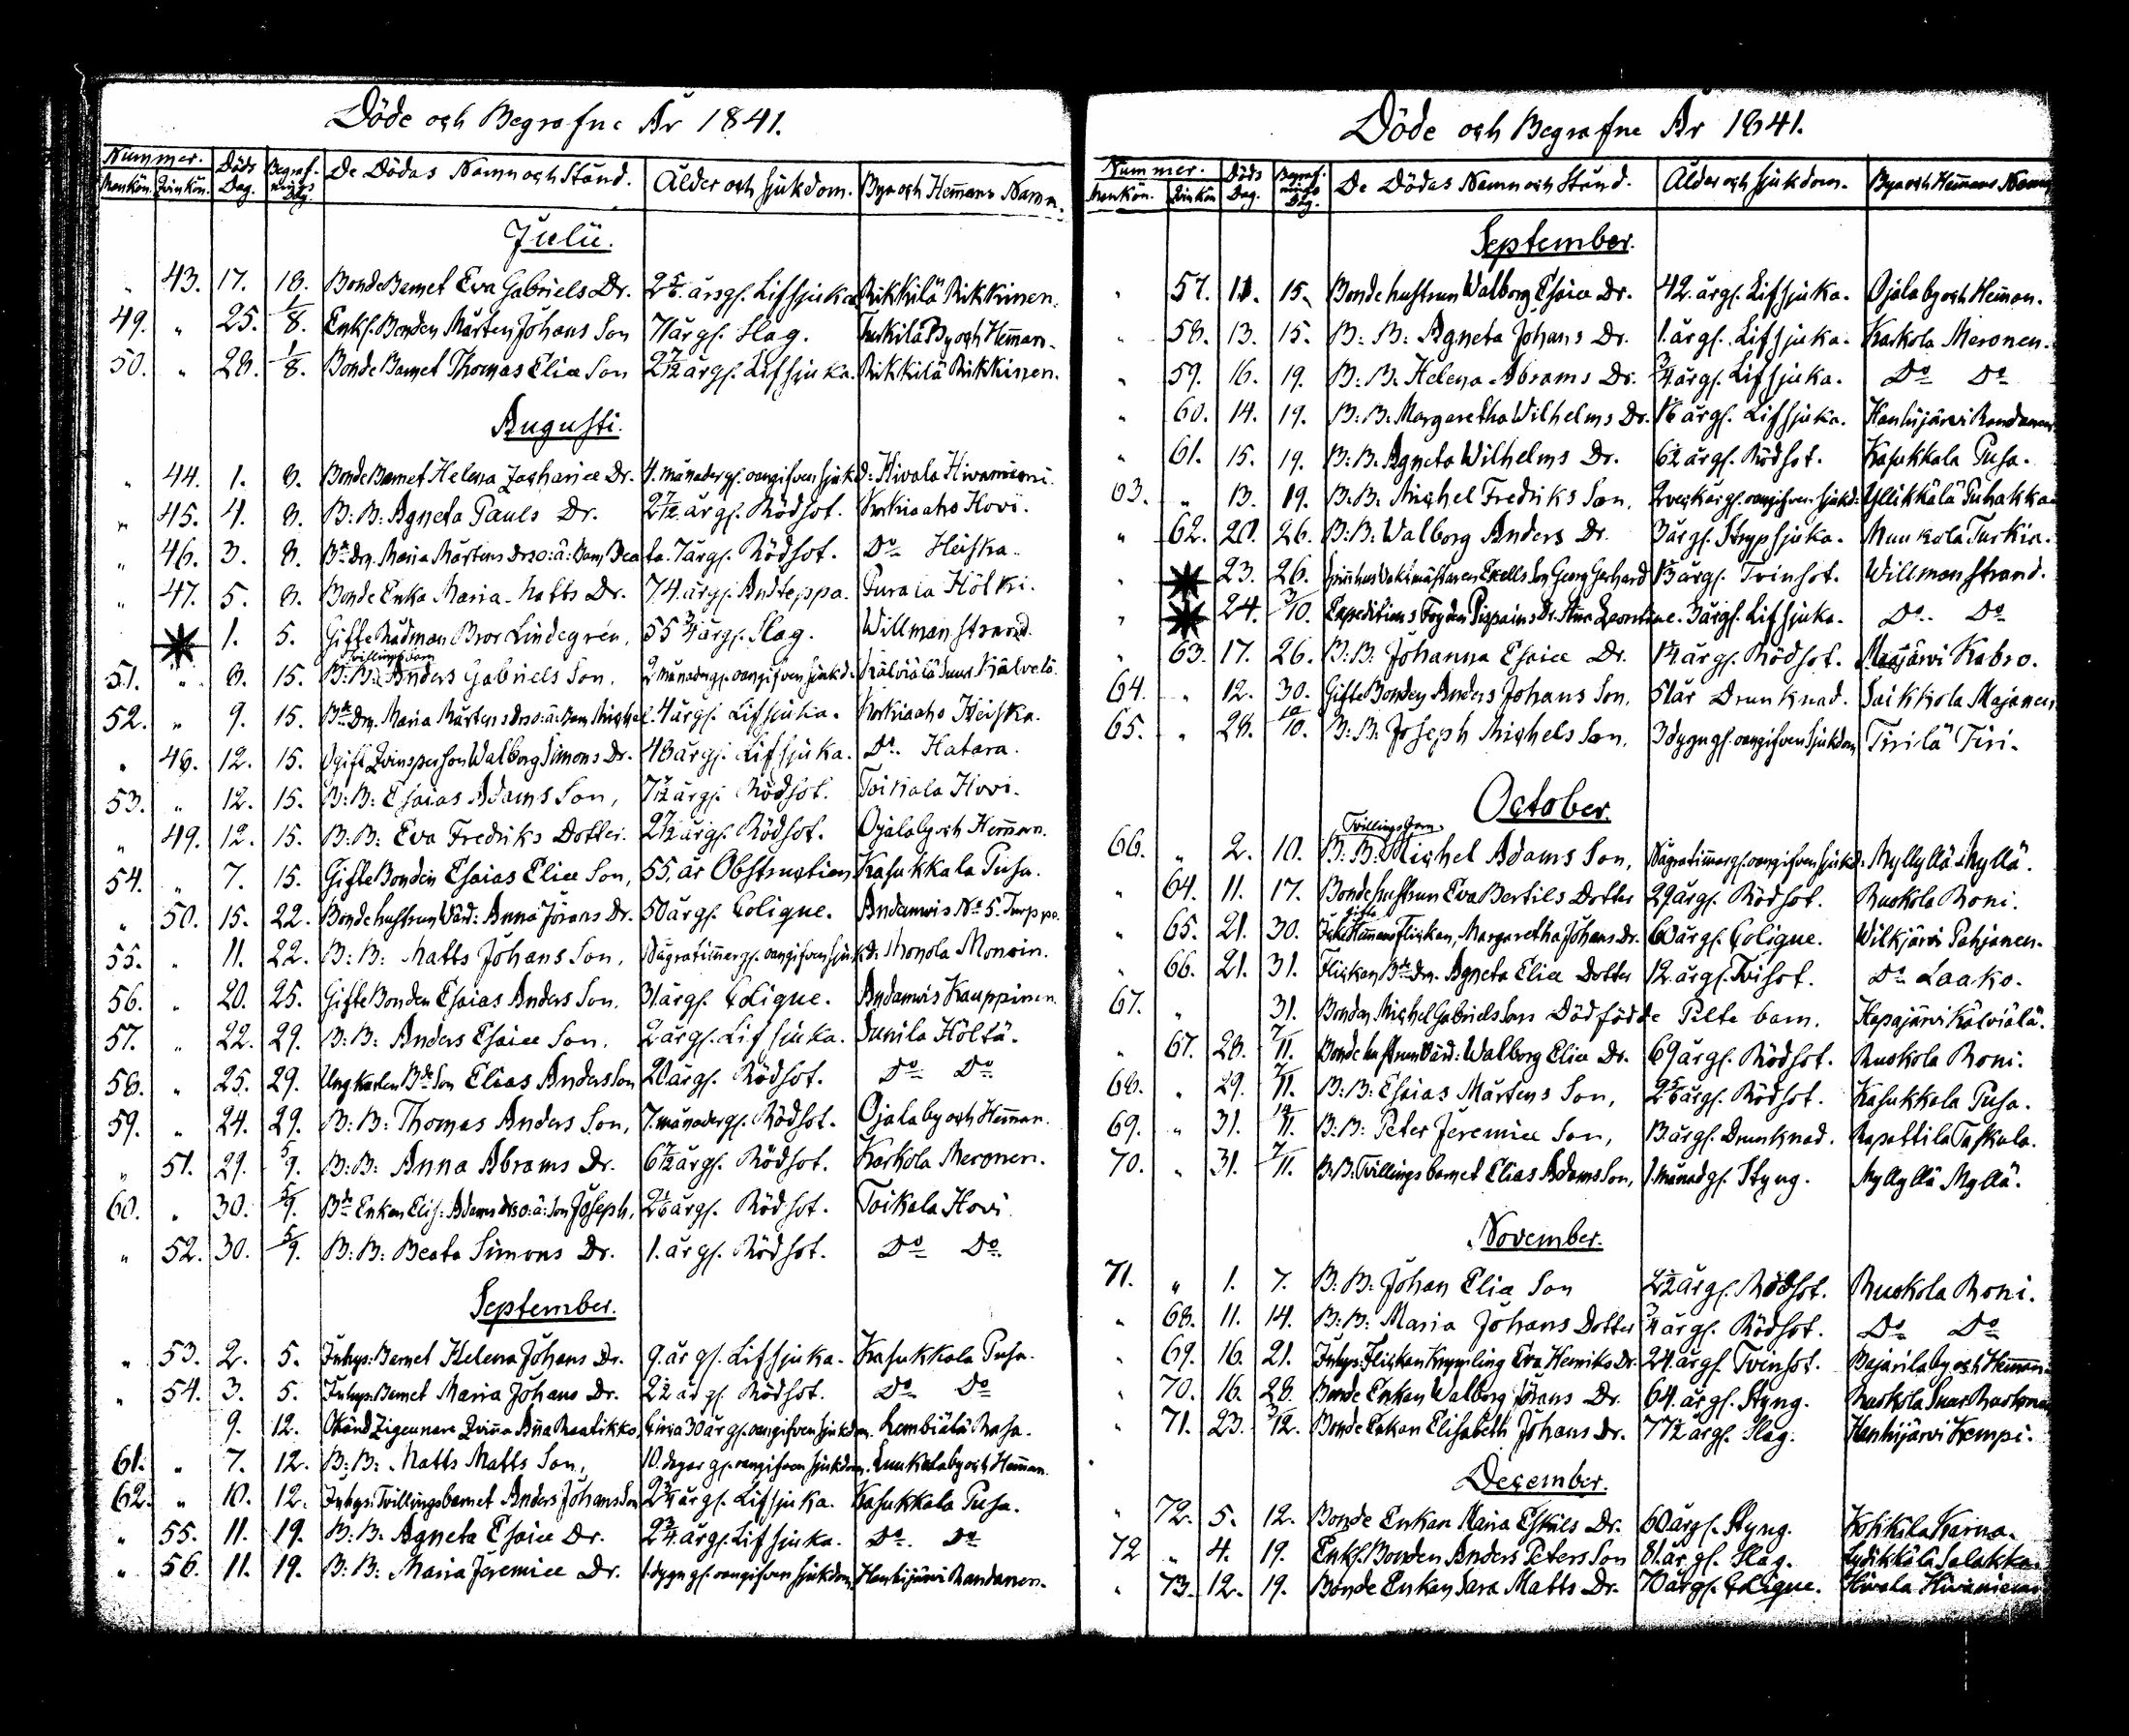 Döde och Begrafne År 1841.
Nummer. Döds Dag. Begraf-nings Dag. De Dödas Namn och Stånd. Ålder och Sjukdom. Bya och Hem̄ans Namn.
Mankön. Qvinkön.
Julii.
" 43. 17. 18. Bonde Barnet Eva Gabriels Dr. 2 5/6. årsgl. Lifsjuka Rikkilä Rikkinen.
49. " 25. 1/8. Enkl. Bonden Mårten Johans Son 71 årgl. Slag. Turkila By och Hem̄an.
50. " 28. 1/8. Bonde Barnet Thomas Eliæ Son 2 7/12 årgl. Lifsjuka. Rikkilä Rikkinen.
Augusti.
" 44. 1. 8. Bonde Barnet Helena Zachariæ Dr. 4. månader gl. oangifven sjukd: Hivola Hivaniemi.
" 45. 4. 8. B: B: Agneta Pauls Dr. 2 7/12. årgl. Rödsot. Korkiaaho Hovi.
" 46. 3. 8. Bde Dn. Maria Mårtens Drs o: ä: Barn Beata. 7 årgl. Rödsot. Do Heiska.
" 47. 5. 8. Bonde Enka Maria Matts Dr. 74. årgl. Andteppa. Hölki.
1. 5. Gifte Rådman Bror Lindegrén. 55 3/4 årgl. Slag. Willmanstrand.
Tvillingsbarn
51. " 8. 15. B: B: Anders Gabriels Son. 2 månader gl. oangifven sjukd. Kälviälä Kälvelä.
52. " 9. 15. Bde Dn. Maria Mårtens Drs o: ä: Barn Michel. 4 årgl. Lifsjuka. Korkiaaho Heiska.
" 48. 12. 15. Ogift Qvinsperson Walborg Simons Dr. 48 årgl. Lifsjuka. Do Hatara.
53. " 12. 15. B: B: Esaias Adams Son, 7 7/12 årgl. Rödsot. Toikala Hovi.
" 49. 12. 15. B: B: Eva Fredriks Dotter. 2 1/2 årgl. Rödsot. Ojala by och Hem̄an.
54. " 7. 15. Gifte Bonden Esaias Eliæ Son, 55. år Obstruction Kasukkala Pusa.
" 50. 15. 22. Bonde hustrun Värd: Anna Jörans Dr. 50 årgl. Colique. Andamois No 5. Turppa.
55. " 11. 22. B: B: Matts Johans Son, Några tim̄ar gl. oangifven sjukd: Monola Monoin.
56. " 20. 25. Gifte Bonden Esaias Anders Son. 31. årgl. Colique. Andamois Kauppinen.
57. " 22. 29. B: B: Anders Esaiæ Son. 2 årgl. Lifsjuka. Junila Höltä.
58. " 25. 29. Ungkarlen Bde Son Elias Anders Son 20 årgl. Rödsot. Do Do
59. " 24. 29. B: B: Thomas Anders Son, 7. månader gl. Rödsot. Ojala by och Hem̄an.
" 51. 29. 5/9. B: B: Anna Abrams Dr. 6 7/12 årgl. Rödsot. Karkola Meronen.
60. " 30. 5/9. Bde Enkan Elis: Adams Drs o: ä: Son Joseph, 2 1/6 årgl. Rödsot. Toikala Hovi
" 52. 30. 5/9. B: B: Beata Simons Dr. 1. årgl. Rödsot. Do Do
September.
" 53. 2. 5. Inhys: Barnet Helena Johans Dr. 9. år gl. Lifsjuka. Kasukkala Pusa.
" 54. 3. 5. Inhys: Barnet Maria Johans Dr. 2 1/2 år gl. Rödsot. Do Do
9. 12. Okänd Zigeunare Qvin̄a An̄a Raatikko, Circa 30 år gl. oangifven sjukdom. Lembiälä Rasa.
61. " 7. 12. B: B: Matts Matts Son, 10. dagar gl. oangifven sjukdom. Muukola by och Hem̄an.
62. " 10. 12. Inhys: Tvillingsbarnet Anders Johans Son 2 3/4 årgl. Lifsjuka. Kasukkala Pusa.
" 55. 11. 19. B: B: Agneta Esaiæ Dr. 2 3/4. årgl. Lifsjuka. Do Do
" 56. 11. 19. B: B: Maria Jeremiæ Dr. 1. dygn gl. oangifven sjukdom, Hanhijärvi Randanen.
Döde och Begrafne År 1841.
Nummer. Döds Dag. Begraf-nings Dag. De Dödas Namn och Stånd. Ålder och Sjukdom. Bya och Hem̄ans Namn
Mankön. Qvinkön
September.
" 57. 11. 15. Bonde hustrun Walborg Esaiæ Dr. 42. årgl. Lifsjuka. Ojala by och Hem̄an.
" 58. 13. 15. B: B: Agneta Johans Dr. 1. årgl. Lifsjuka. Karkola Meronen.
" 59. 16. 19. B: B: Helena Abrams Dr. 3/4 årgl. Lifsjuka. Do Do
" 60. 14. 19. B: B: Margaretha Wilhelms Dr. 1 1/6 årgl. Lifsjuka. Hanhijärvi Randanen
" 61. 15. 19. B: B: Agneta Wilhelms Dr. 6 1/2 årgl. Rödsot. Kasukkala Pusa.
63. " 13. 19. B: B: Michel Fredriks Son. 2 veckor gl. oangifven sjukd: Yllikkälä Puhakka
" 62. 20. 26. B: B: Walborg Anders Dr. 3 årgl. Strypsjuka. Muukola Turkia.
" 23. 26. Spin̄hus Vaktmästaren Ekells Son Georg Gerhard årgl. Tvinsot. Willmanstrand.
" 24. 3/10. Expeditions Fogden Pispains Dr. Leontine. 3 årgl. Lifsjuka. Do Do
" 63. 17. 26. B: B: Johanna Esaiæ Dr. årgl. Rödsot. Kabro.
64. " 12. 30. Gifte Bonden Anders Johans Son. 51 år Drunknad. Saikkola Majanen
65. " 28. 10/10. B: B: Joseph Michels Son, 3 dygn gl. oangifven sjukdom Tirilä Tiri.
October.
Tvillingsbarn
66. " 2. 10. B: B: Michel Adams Son, Några tim̄ar gl. oangifven sjukd: Myllylä Myllä.
" 64. 11. 17. Bonde hustrun Eva Bertils Dotter 29 årgl. Rödsot. Ruokola Roni.
gifta
" 65. 21. 30. Flickan, Margaretha Johans Dr. 60 årgl. Colique. Wilkjärvi Pahjanen.
" 66. 21. 31. Flickan, Bde Dn. Agneta Eliæ Dotter 12. årgl. Tvisot. Do Laako.
67. " 31. Bonden Michel Gabriels Sons Dödfödde Pilte barn. Hapajärvi Kälviälä.
" 67. 28. 7/11. Bonde hustrun Värd: Walborg Eliæ Dr. 69 årgl. Rödsot. Ruokola Roni.
68. " 29. 7/11. B: B: Esaias Mårtens Son, 2 5/6 årgl. Rödsot. Kasukkala Pusa.
69. " 31. 14/11. B: B: Peter Jeremiæ Son, 13. årgl. Drunknad. Rapattila Taskula.
70. " 31. 7/11. B: B: Tvillings barnet Elias Adams Son, 1. månad gl. Styng. Myllylä Myllä.
November.
71. " 1. 7. B: B: Johan Eliæ Son 2 1/2 årgl. Rödsot. Ruokola Roni.
" 68. 11. 14. B: B: Maria Johans Dotter 3/4 årgl. Rödsot. Do Do
" 69. 16. 21. Inhys: Flickan Krympling Eva Henriks Dr. 24. årgl. Tvinsot. Bajarila by och Hem̄an.
" 70. 16. 28. Bonde Enkan Walborg Jörans Dr. 64. årgl. Styng. Ruokola
" 71. 23. 3/12. Bonde Enkan Elisabeth Johans Dr. 77 1/2 årgl. Slag. Hanhijärvi Kempi.
December.
" 72. 5. 12. Bonde Enkan Maria Eskils Dr. 60 årgl. Styng. Karna.
72 " 4. 19. Enkl. Bonden Anders Peters Son 81. år gl. Slag. Salakka.
" 73. 12. 19. Bonde Enkan Sara Matts Dr. 70 årgl. Colique. Hivola Hivaniemi